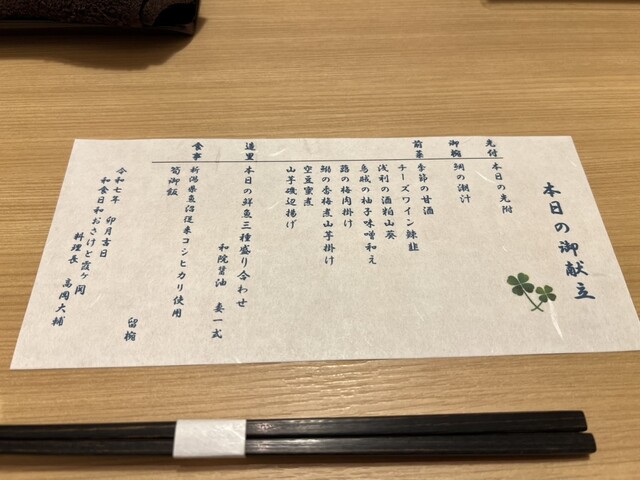 本日の御献立
先付 本日の先附
御椀 鯛の潮汁
前菜 季節の甘酒
チーズワイン辣韮
浅利の酒粕山葵
烏賊の柚子味噌和え
鱧の梅肉掛け
鰯の香梅煮山芋掛け
空豆蜜煮
山芋磯辺揚げ
造里 本日の鮮魚三種盛り合わせ
和院醤油 妻一式
食事 新潟県魚沼従来コシヒカリ使用
筍御飯
留椀
令和七年 卯月吉日
和食日和おさけと霞ヶ関
料理長 高岡大輔